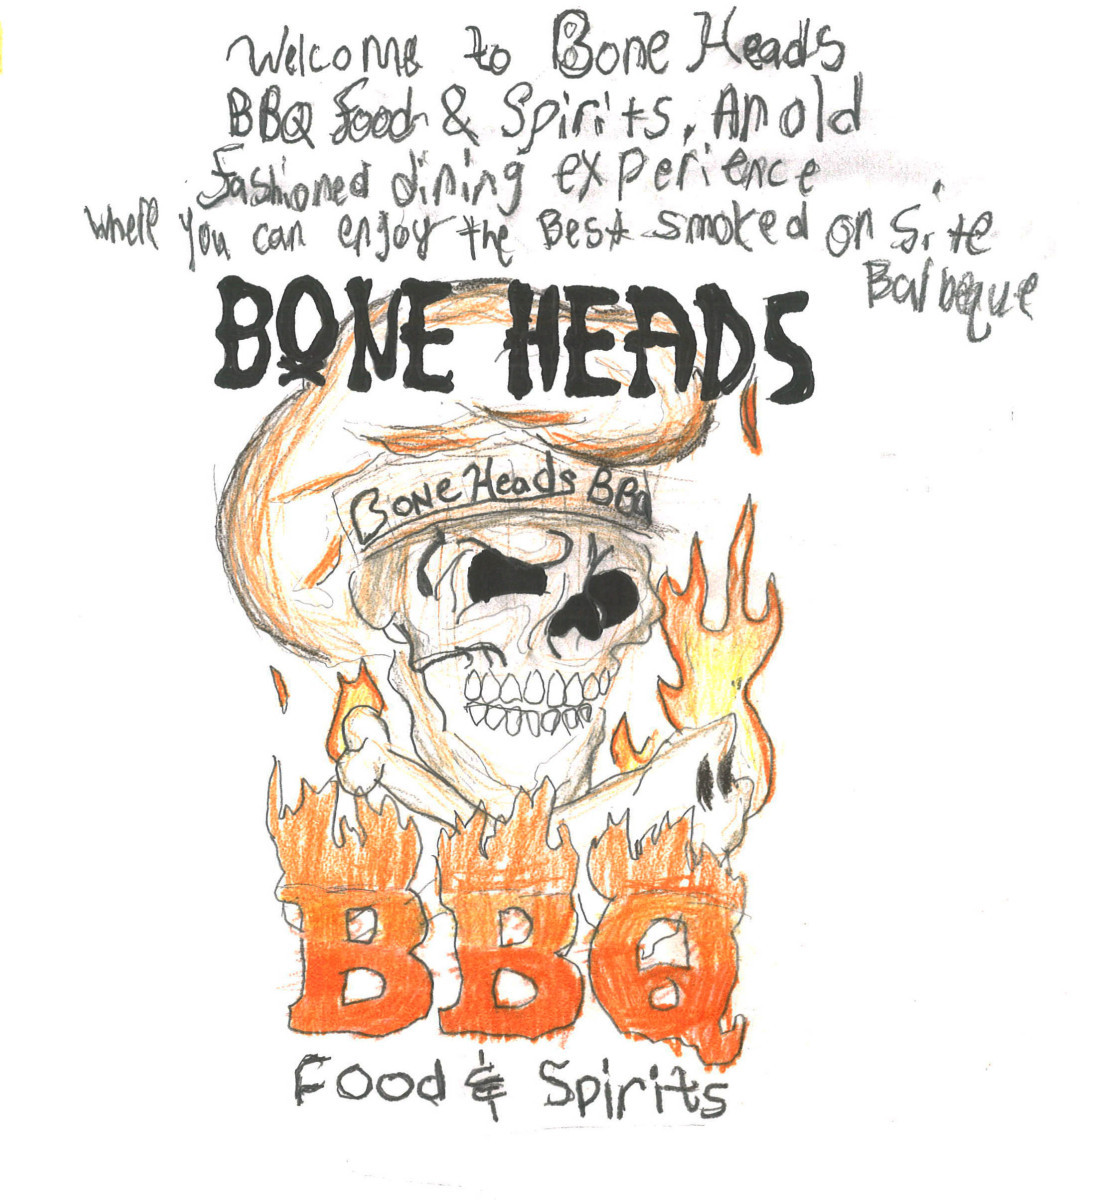 Welcome to Bone Heads
BBQ Food & Spirits. An old
fashioned dining experience
where you can enjoy the Best smoked on Site
Barbeque
BONE HEADS
Bone Heads BBQ
BBQ
Food & Spirits